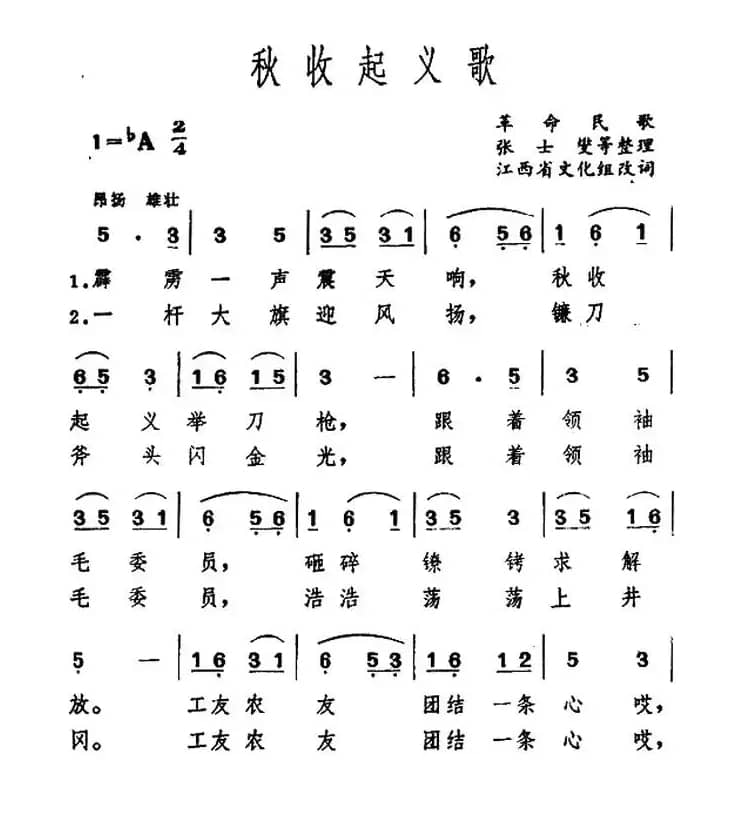 秋收起义歌
革命民歌
1=♭A 2/4
张士燮等整理
江西省文化组改词
昂扬 雄壮
5 . 3 | 3 5 | 3 5 3 1 | 6 5 6 | 1 6 1 |
1.霹雳一声震天响，秋收
2.一杆大旗迎风扬，镰刀
6 5 3 | 1 6 1 5 | 3 — | 6 . 5 | 3 5 |
起义举刀枪，跟着领袖
斧头闪金光，跟着领袖
3 5 3 1 | 6 5 6 | 1 6 1 | 3 5 3 | 3 5 1 6 |
毛委员，砸碎镣铐求解
毛委员，浩浩荡荡上井
5 — | 1 6 3 1 | 6 5 3 | 1 6 1 2 | 5 3 |
放。工友农友团结一条心哎，
冈。工友农友团结一条心哎，